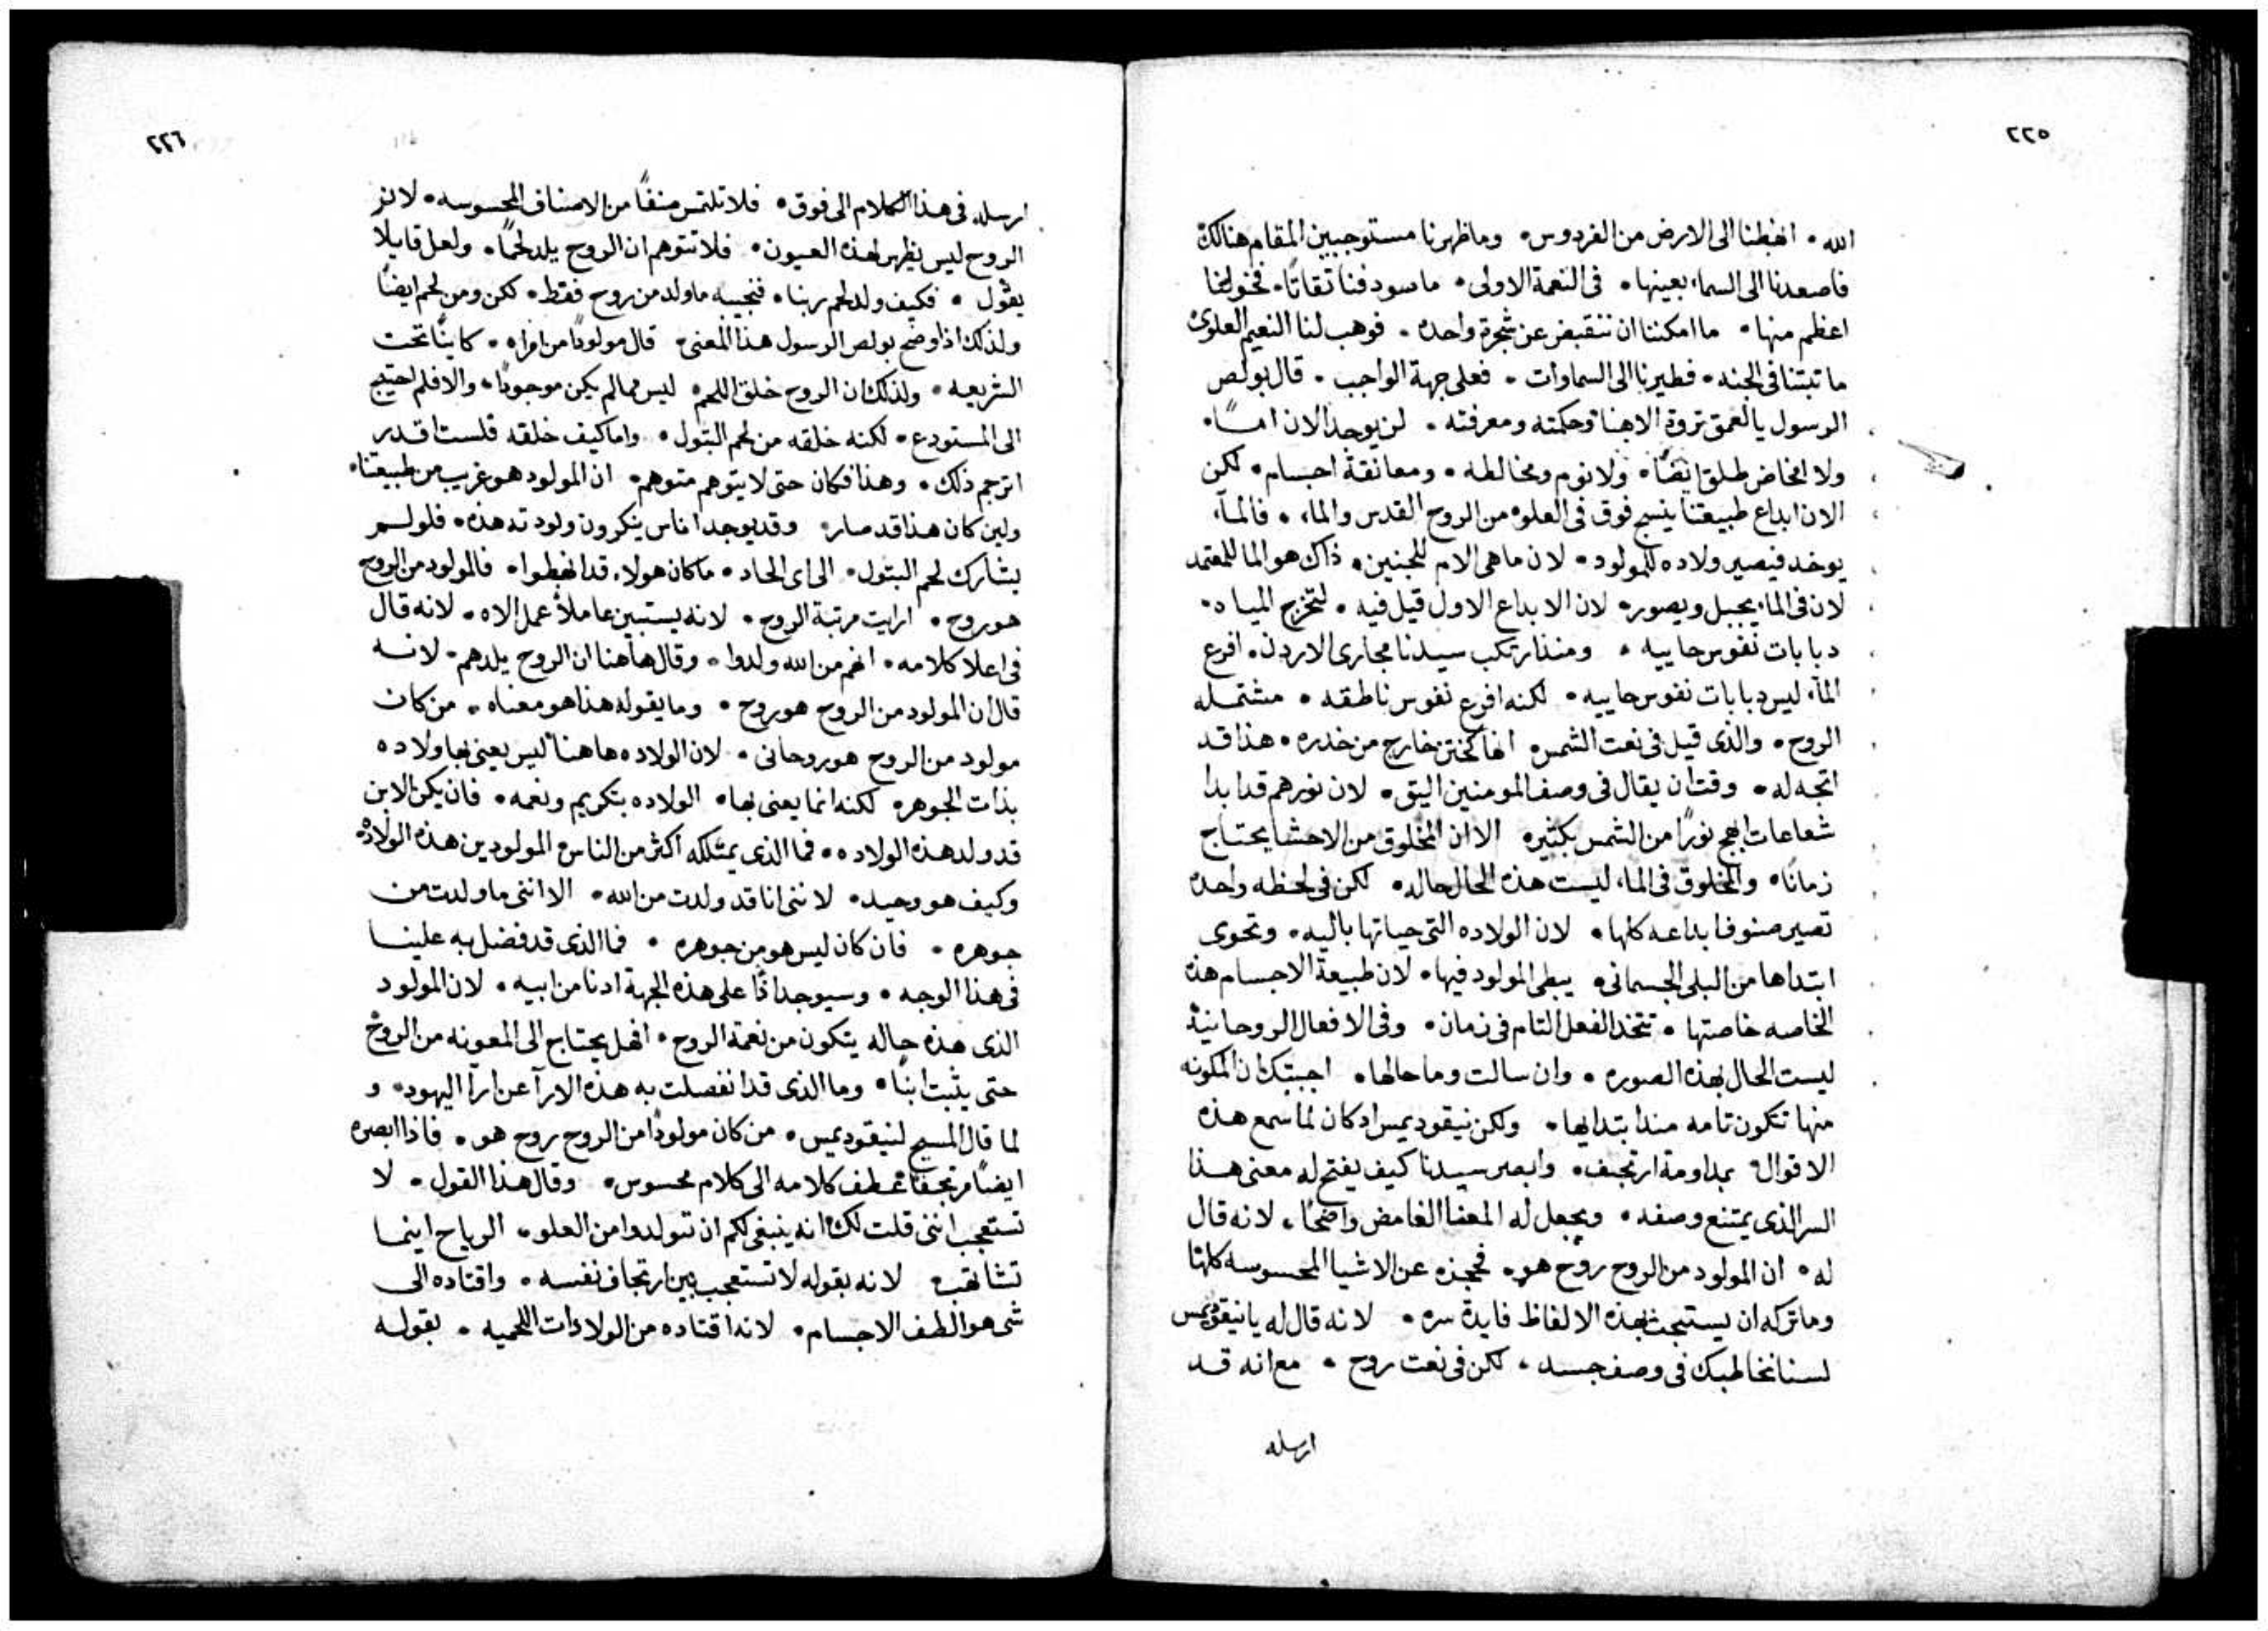 ٢٢٥
الله • اهبطنا الى الارض من الفردوس • وما ظهرنا مستوجبين المقام هنالك
فاصعدنا الى السماء بعينها • فى النعمة الاولى • ما سودفنا تقاتًا • فخولنا
اعظم منها • ما امكننا ان ننقبض عن شجرة واحده • فوهب لنا النعيم العلوى
ما تبتنا فى الجنه • فطيرنا الى السماوات • فعلى جهة الواجب • قال بولص
الرسول يا لعمق ثروة الاهنا وحكمته ومعرفته • لن يوجد الان امًا •
ولا مخاض طلق ايضًا • ولا نوم ومخالطه • ومعانقة اجسام • لكن
الان ابداع طبيعتنا ينسج فوق فى العلوه من الروح القدس والماء • فالمآء
يوخد فيصير ولاده للمولود • لان ما هى الام للجنين • ذاك هو الما للمعتمد
لان فى الماء يجبل ويصور • لان الابداع الاول قيل فيه • لتخرج المياه •
دبابات نفوس حاييه • ومنذ ارتكب سيدنا مجارى الاردن • افرع
المآء ليس دبابات نفوس حاييه • لكنه افرع نفوس ناطقه • مشتمله
الروح • والذى قيل فى نعت الشمس • انها كختن خارج من خدره • هذا قد
اتجه له • وقت ان يقال فى وصف المومنين اليق • لان نورهم قد ابدا
شعاعات ابهج نورًا من الشمس بكثير • الا ان المخلوق من الاحشا يحتاج
زمانًا • والمخلوق فى الماء ليست هذه الحال حاله • لكن فى لحظه واحده
تصير صنوف ابداعه كلها • لان الولاده التى حياتها باليه • وتحوى
ابتداها من البلى الجسمانى • يبطى المولود فيها • لان طبيعة الاجسام هذه
الخاصه خاصتها • تتخد الفعل التام فى زمان • وفى الافعال الروحانية
ليست الحال بهذه الصوره • وان سالت وما حالها • اجبتك ان المكونه
منها تتكون تامه منذ ابتدايها • ولكن نيقوديمس اد كان لما سمع هذه
الاقوال • بمداومة ارتجف • وابصر سيدنا كيف يفتح له معنى هذا
السر الذى يمتنع وصفه • ويجعل له المعنا الغامض واضحًا • لانه قال
له • ان المولود من الروح روح هو • فحجزه عن الاشيا المحسوسه كلها
وما تركه ان يستبحث بهذه الالفاظ فايدة سره • لانه قال له يا نيقوديمس
لسنا نخاطبك فى وصف جسد • لكن فى نعت روح • مع انه قد
ارسله
٢٢٦
ارسله فى هذا الكلام الى فوق • فلا تلتمس صنفًا من الاصناف المحسوسه • لان
الروح ليس يظهر لهذه العيون • فلا تتوهم ان الروح يلد لحمًا • ولعل قايلا
يقول • فكيف ولد لحم ربنا • فنجيبه ما ولد من روح فقط • لكن ومن لحم ايضًا
ولذلك اذ اوضح بولص الرسول هذا المعنى • قال مولودًا من امراه • كاينًا تحت
الشريعه • ولذلك ان الروح خلق اللحم • ليس مما لم يكن موجودًا • والا فلم احتيج
الى المستودع • لكنه خلقه من لحم البتول • واما كيف خلقه فلست اقدر
اترجم ذلك • وهذا فكان حتى لا يتوهم متوهم • ان المولود هو غريب من طبيعتنا •
ولين كان هذا قد صار • وقد يوجد اناس ينكرون ولودته هذه • فلو لم
يشارك لحم البتول • الى اى الحاد • ما كان هولاء قد انهبطوا • فالمولود من الروح
هو روح • ارايت مرتبة الروح • لانه يستبين عاملاً عمل الاه • لانه قال
فى اعلا كلامه • انهم من الله ولدوا • وقال هاهنا ان الروح يلدهم • لانه
قال ان المولود من الروح هو روح • وما يقوله هذا هو معناه • من كان
مولود من الروح هو روحانى • لان الولاده هاهنا ليس يعنى بها ولاده
بذات الجوهر • لكنه انما يعنى بها • الولاده بتكريم ونعمه • فان يكن الابن
قد ولد هذه الولاده • فما الذى يمتلكه اكثر من الناس المولودين هذه الولاده •
وكيف هو وحيد • لاننى انا قد ولدت من الله • الا اننى ما ولدت من
جوهره • فان كان ليس هو من جوهره • فما الذى قد فضل به علينا
فى هذا الوجه • وسيوجد اذًا على هذه الجهة ادنا من ابيه • لان المولود
الذى هذه حاله يتكون من نعمة الروح • افهل يحتاج الى المعونه من الروح
حتى يثبت ابنًا • وما الذى قد انفصلت به هذه الارآ عن ارآ اليهود • و
لما قال المسيح لنيقوديمس • من كان مولودًا من الروح روح هو • فاذا ابصره
ايضًا مرتجفًا عطف كلامه الى كلام محسوس • وقال هذا القول • لا
تستعجب اننى قلت لك انه ينبغى لكم ان تتولدوا من العلو • الرياح اينما
تشا تهب • لانه بقوله لا تستعجب بين ارتجاف نفسه • واقتاده الى
شى هو الطف الاجسام • لانه اقتاده من الولادات اللحميه • بقوله